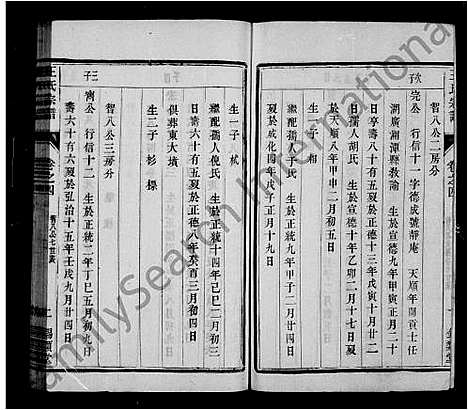 王氏宗譜
智八公二房分
次子
完公 行信十一字德成號靜庵 天順年間貢士任
湖廣湘潭縣教諭 生於宣德九年甲寅正月二十
日亨壽八十五歲歿於正德十三年戊寅十月廿
日孺人胡氏 生於宣德十年乙卯二月十七日歿
於天順八年 甲申
生一子 相
繼配孺人于氏 生於正統九年甲子二月廿四日
歿於成化四年戊子十月十九日
生一子 梡
繼配孺人倪氏 生於正統十四年己巳二月初三
日壽六十有五歲歿於正德八年癸酉三月初八日
俱葬東大墳
生二子 杉 標
智八公三房分
三子
齊公 行信十二 生於正統二年丁巳五月初九日
壽六十有六歲歿於弘治十五年壬戌九月廿四日
王氏宗譜
卷之四
智八公七世表
二
FamilySearch International